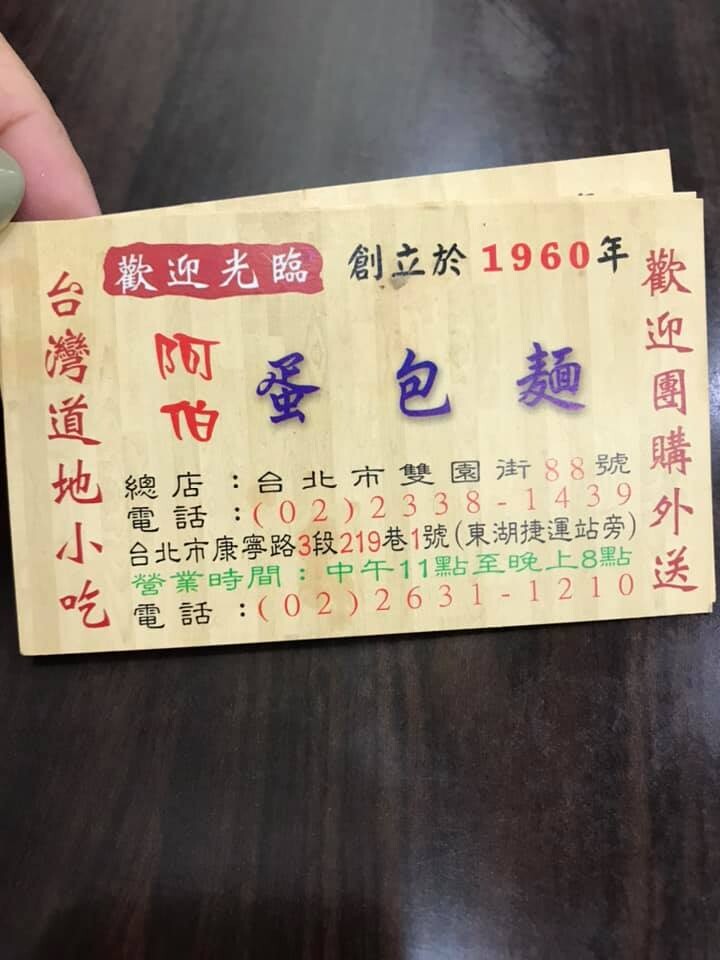 歡迎光臨 創立於1960年
台灣道地小吃
阿伯 蛋包麵
歡迎團購外送
總店：台北市雙園街88號
電話：(02)2338-1439
台北市康寧路3段219巷1號(東湖捷運站旁)
營業時間：中午11點至晚上8點
電話：(02)2631-1210